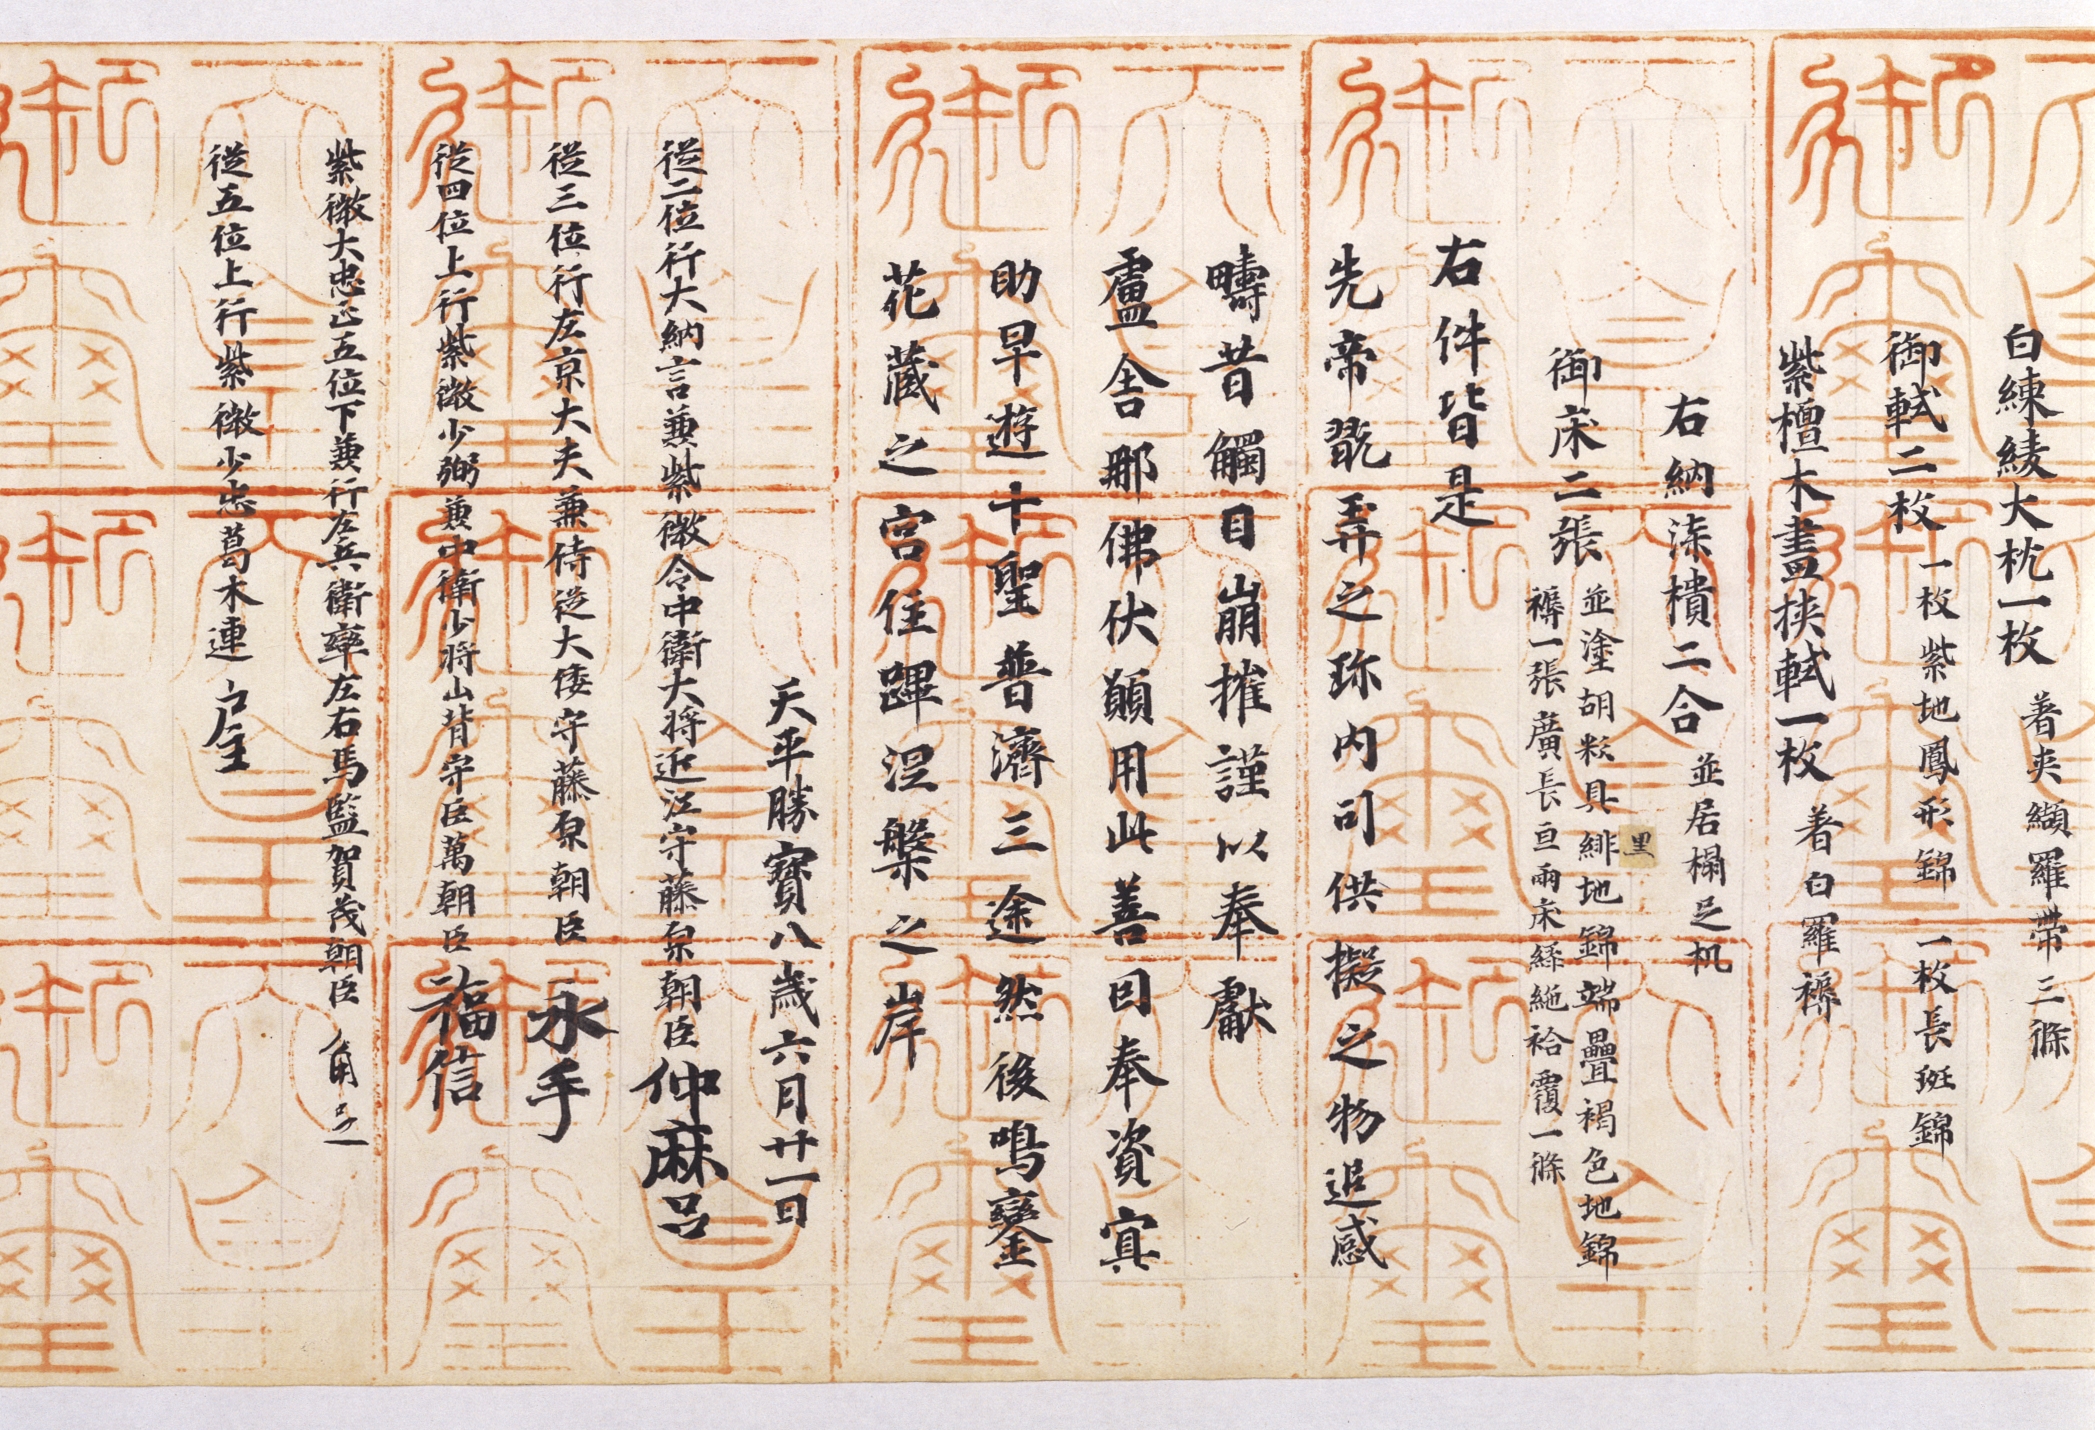 白練綾大枕一枚 著夾纈羅帶三條
御軾二枚 一枚紫地鳳形錦 一枚長斑錦
紫檀木畫挾軾一枚 著白羅褥
右納漆樻二合 並居榻足机
御床二張 並塗胡粉具緋地錦端疊褐色地錦
褥一張廣長亘兩床綠絁袷覆一條
黑
右件皆是
先帝翫弄之珍内司供擬之物追感
疇昔觸目崩摧謹以奉獻
盧舍那佛伏願用此善因奉資冥
助早遊十聖普濟三途然後鳴鑾
花藏之宮住蹕涅槃之岸
天平勝寶八歲六月廿一日
從二位行大納言兼紫微令中衛大將近江守藤原朝臣仲麻呂
從三位行左京大夫兼侍從大倭守藤原朝臣永手
從四位上行紫微少弼兼中衛少將山背守巨萬朝臣福信
紫微大忠正五位下兼行左兵衛率左右馬監賀茂朝臣角足
從五位上行紫微少忠葛木連戶主
天皇御璽